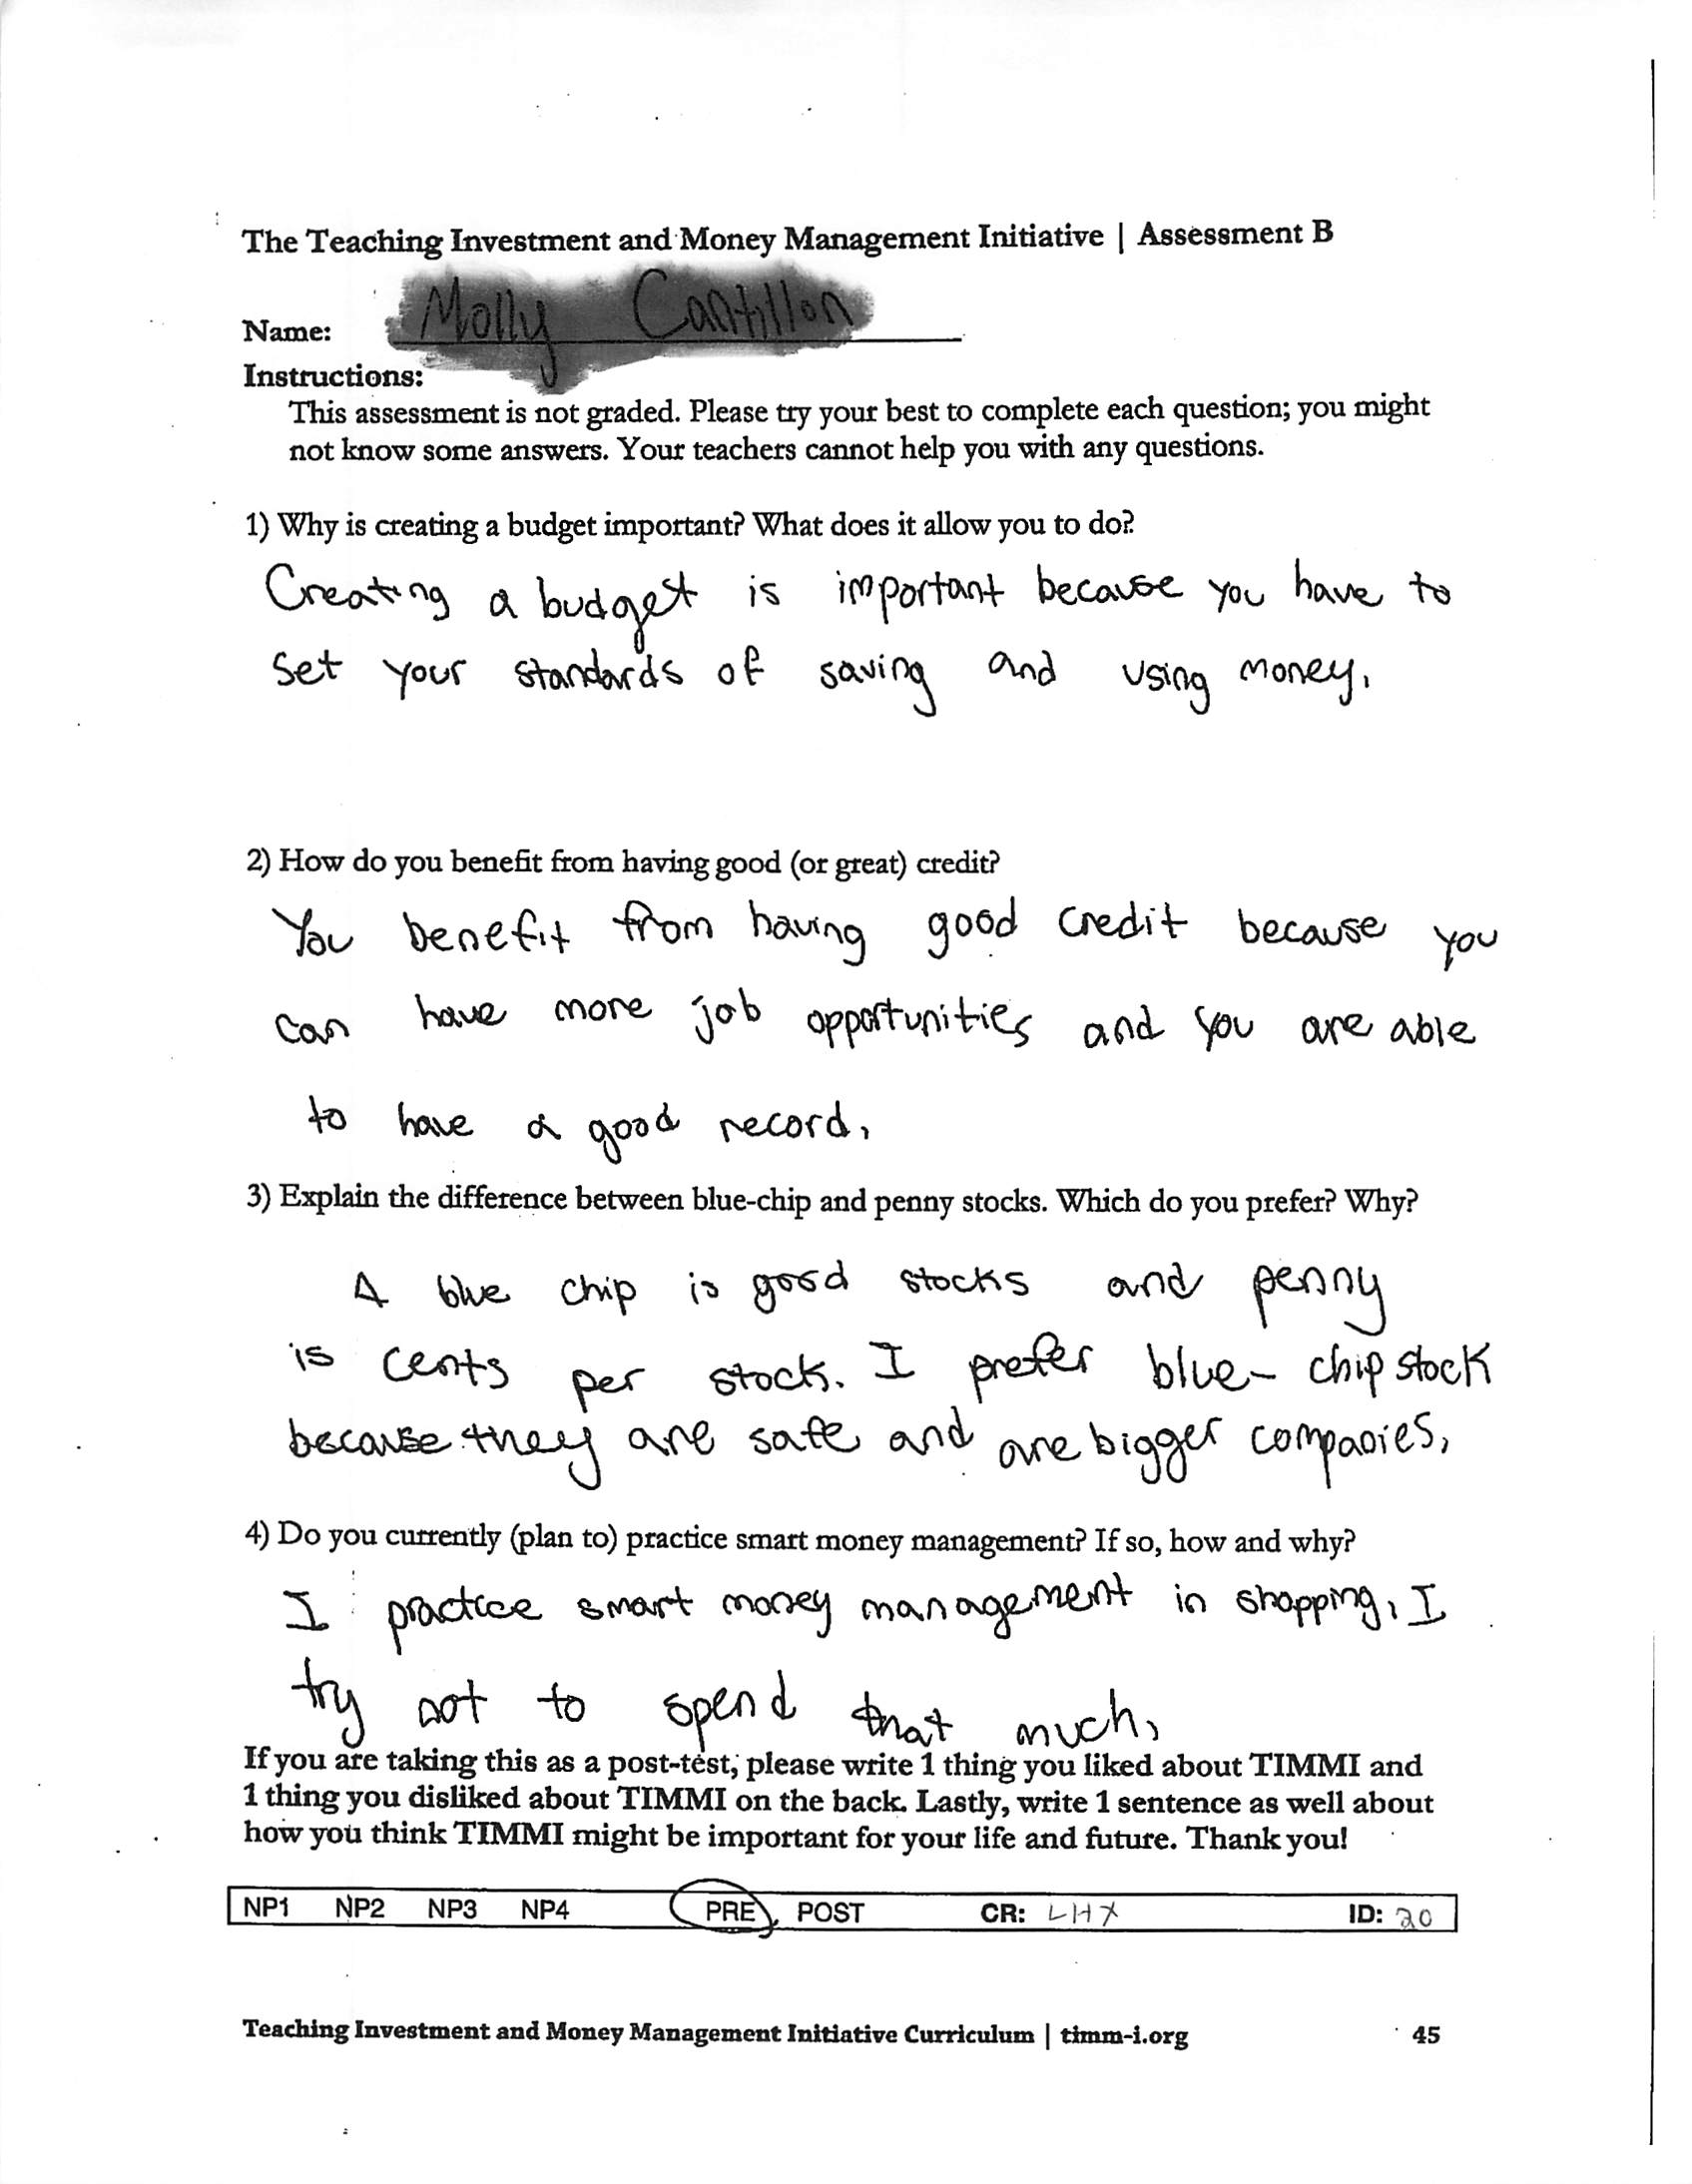 The Teaching Investment and Money Management Initiative | Assessment B
Name: Molly Cantillon
Instructions:
This assessment is not graded. Please try your best to complete each question; you might
not know some answers. Your teachers cannot help you with any questions.
1) Why is creating a budget important? What does it allow you to do?
Creating a budget is important because you have to
set your standards of saving and using money.
2) How do you benefit from having good (or great) credit?
You benefit from having good credit because you
can have more job opportunities and you are able
to have a good record.
3) Explain the difference between blue-chip and penny stocks. Which do you prefer? Why?
A blue chip is good stocks and penny
is cents per stock. I prefer blue-chip stock
because they are safe and are bigger companies.
4) Do you currently (plan to) practice smart money management? If so, how and why?
I practice smart money management in shopping, I
try not to spend that much.
If you are taking this as a post-test, please write 1 thing you liked about TIMMI and
1 thing you disliked about TIMMI on the back. Lastly, write 1 sentence as well about
how you think TIMMI might be important for your life and future. Thank you!
NP1 NP2 NP3 NP4 PRE POST CR: LHX ID: 20
Teaching Investment and Money Management Initiative Curriculum | timm-i.org 45